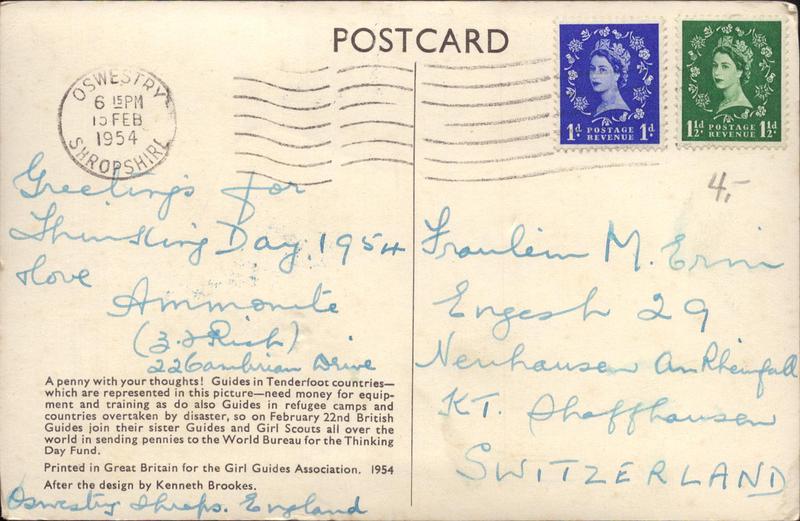 POSTCARD
OSWESTRY
6 15PM
15 FEB
1954
SHROPSHIRE
1d. POSTAGE REVENUE 1d.
1½d. POSTAGE REVENUE 1½d.
4,-
Greetings for
Thinking Day, 1954
Love
Ammonite
22 Cambrian Drive
A penny with your thoughts! Guides in Tenderfoot countries—
which are represented in this picture—need money for equip-
ment and training as do also Guides in refugee camps and
countries overtaken by disaster, so on February 22nd British
Guides join their sister Guides and Girl Scouts all over the
world in sending pennies to the World Bureau for the Thinking
Day Fund.
Printed in Great Britain for the Girl Guides Association. 1954
After the design by Kenneth Brookes.
Oswestry Shrops. England
Fraulein M. Erni
Engesh 29
Neuhausen An Rheinfall
KT. Shaffhausen
SWITZERLAND